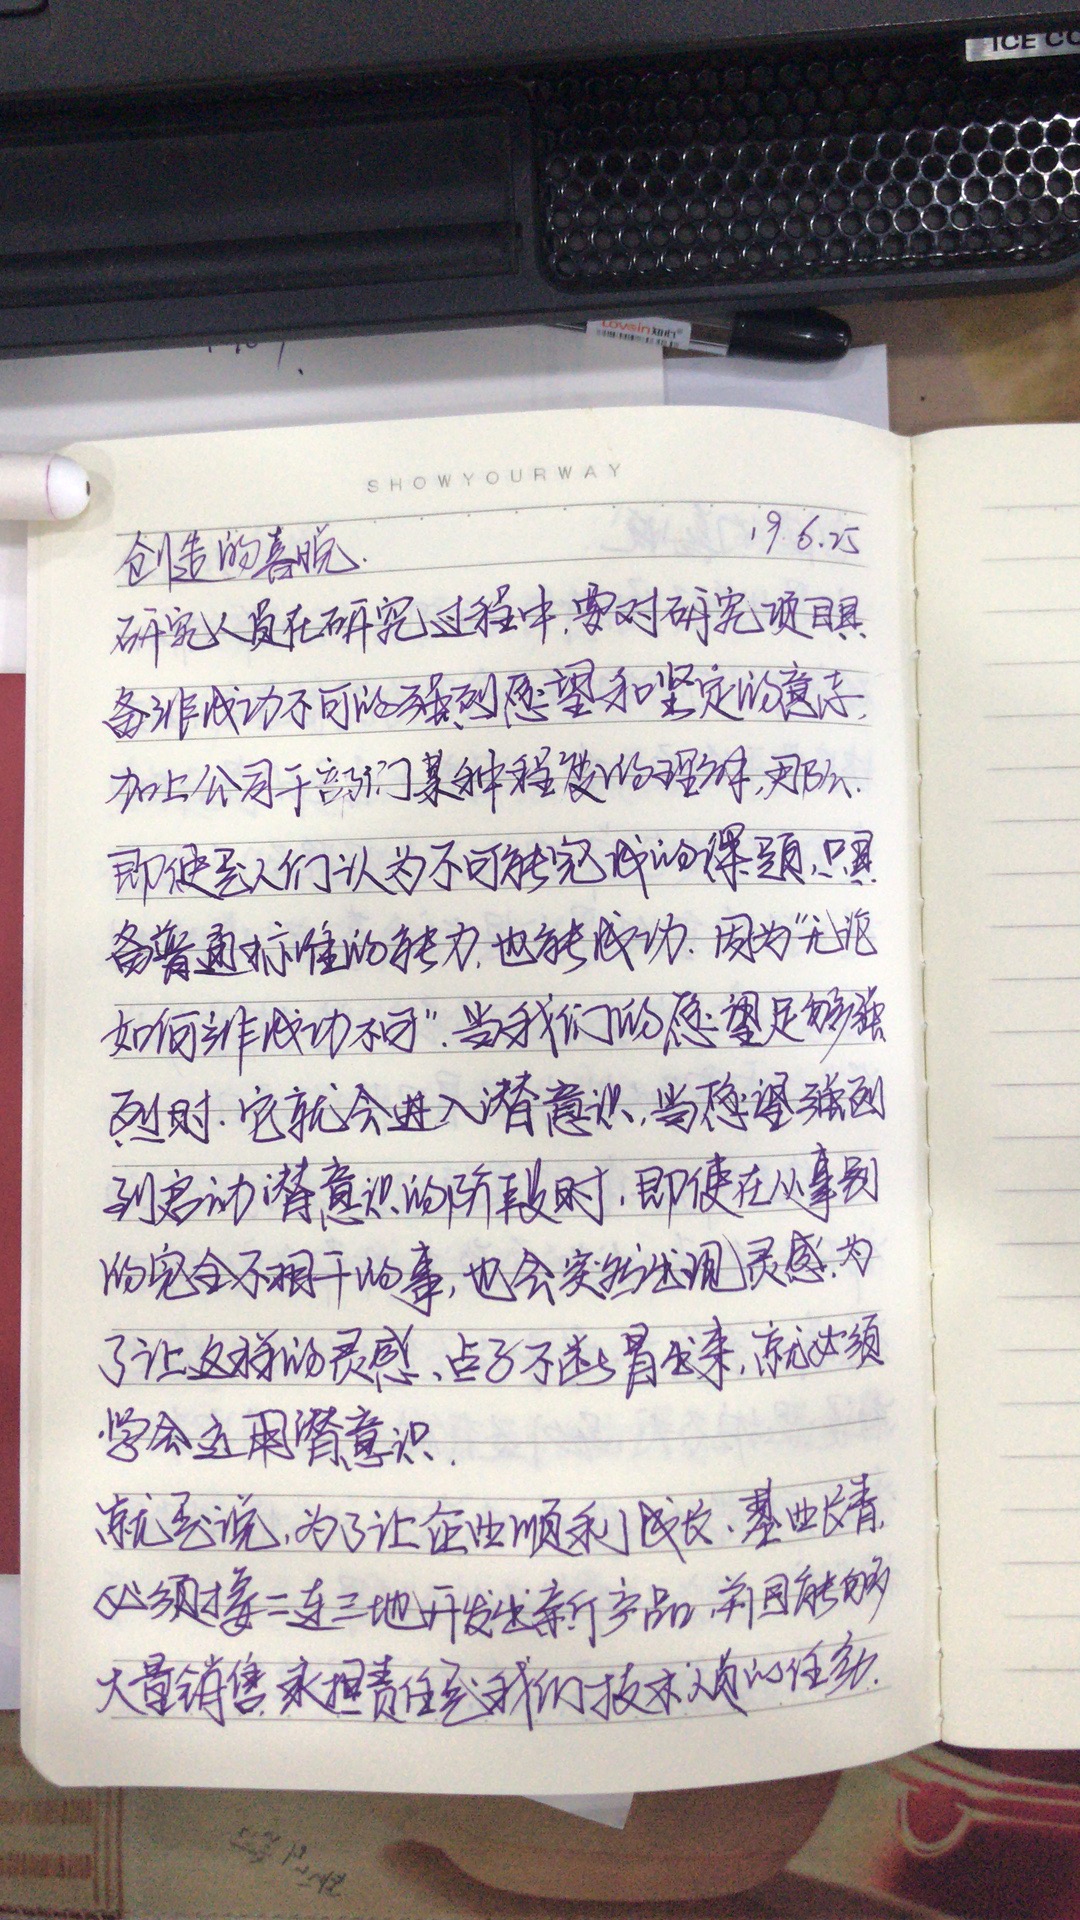 ICE CO
Lovein
SHOWYOURWAY
创造的喜悦. 19.6.25
研究人员在研究过程中,要对研究项目具
备非成功不可的强烈愿望和坚定的意志.
加上公司干部门某种程度的理解,那么.
即使是人们认为不可能完成的课题,只具
备普通标准的能力,也能成功.因为“无论
如何非成功不可”.当我们的愿望足够强
烈时.它就会进入潜意识,当愿望强烈
到启动潜意识的阶段时,即使在从事别
的完全不相干的事,也会突然出现灵感.为
了让这样的灵感、点子不断冒出来,就必须
学会应用潜意识.
就是说,为了让企业顺利成长、基业长青,
必须接二连三地开发出新产品,并因能够
大量销售,承担责任是我们技术人员的任务.